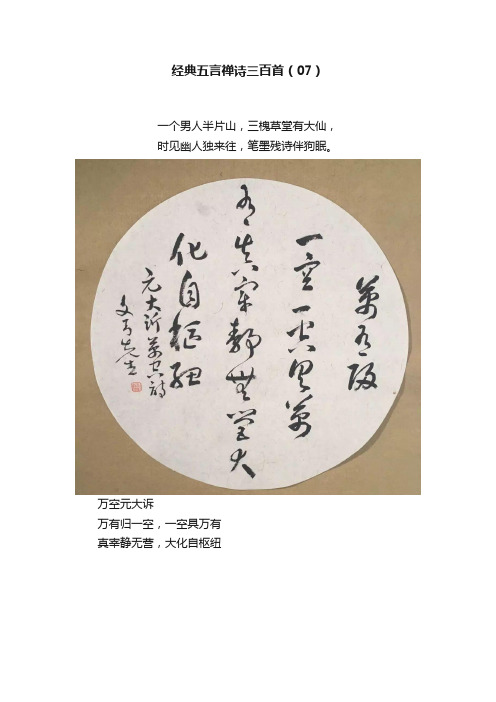 经典五言禅诗三百首（07）
一个男人半片山，三槐草堂有大仙，
时见幽人独来往，笔墨残诗伴狗眠。
萬有歸
一空一空具萬
有真宰靜無營大
化自樞紐
元大訢萬空詩
先生
万空元大诉
万有归一空，一空具万有
真宰静无营，大化自枢纽